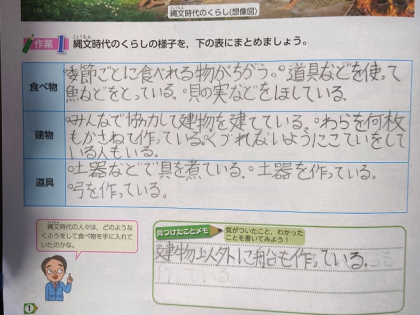 縄文時代のくらし(想像図)
作業 1 縄文時代のくらしの様子を、下の表にまとめましょう。
食べ物
季節ごとに食べれる物がちがう。°道具などを使って
魚などをとっている。°貝の実などをほしている。
建物
°みんなで協力して建物を建てている。°わらを何枚
もかさねて作っている。くずれないようにこていをして
いる人もいる。
道具
°土器などで具を煮ている。°土器を作っている。
°弓を作っている。
縄文時代の人々は、どのような
くふうをして食べ物を手に入れて
いたのかな。
見つけたことメモ
気がついたこと、わかった
ことを書いてみよう!
建物以外に船も作っている。
1